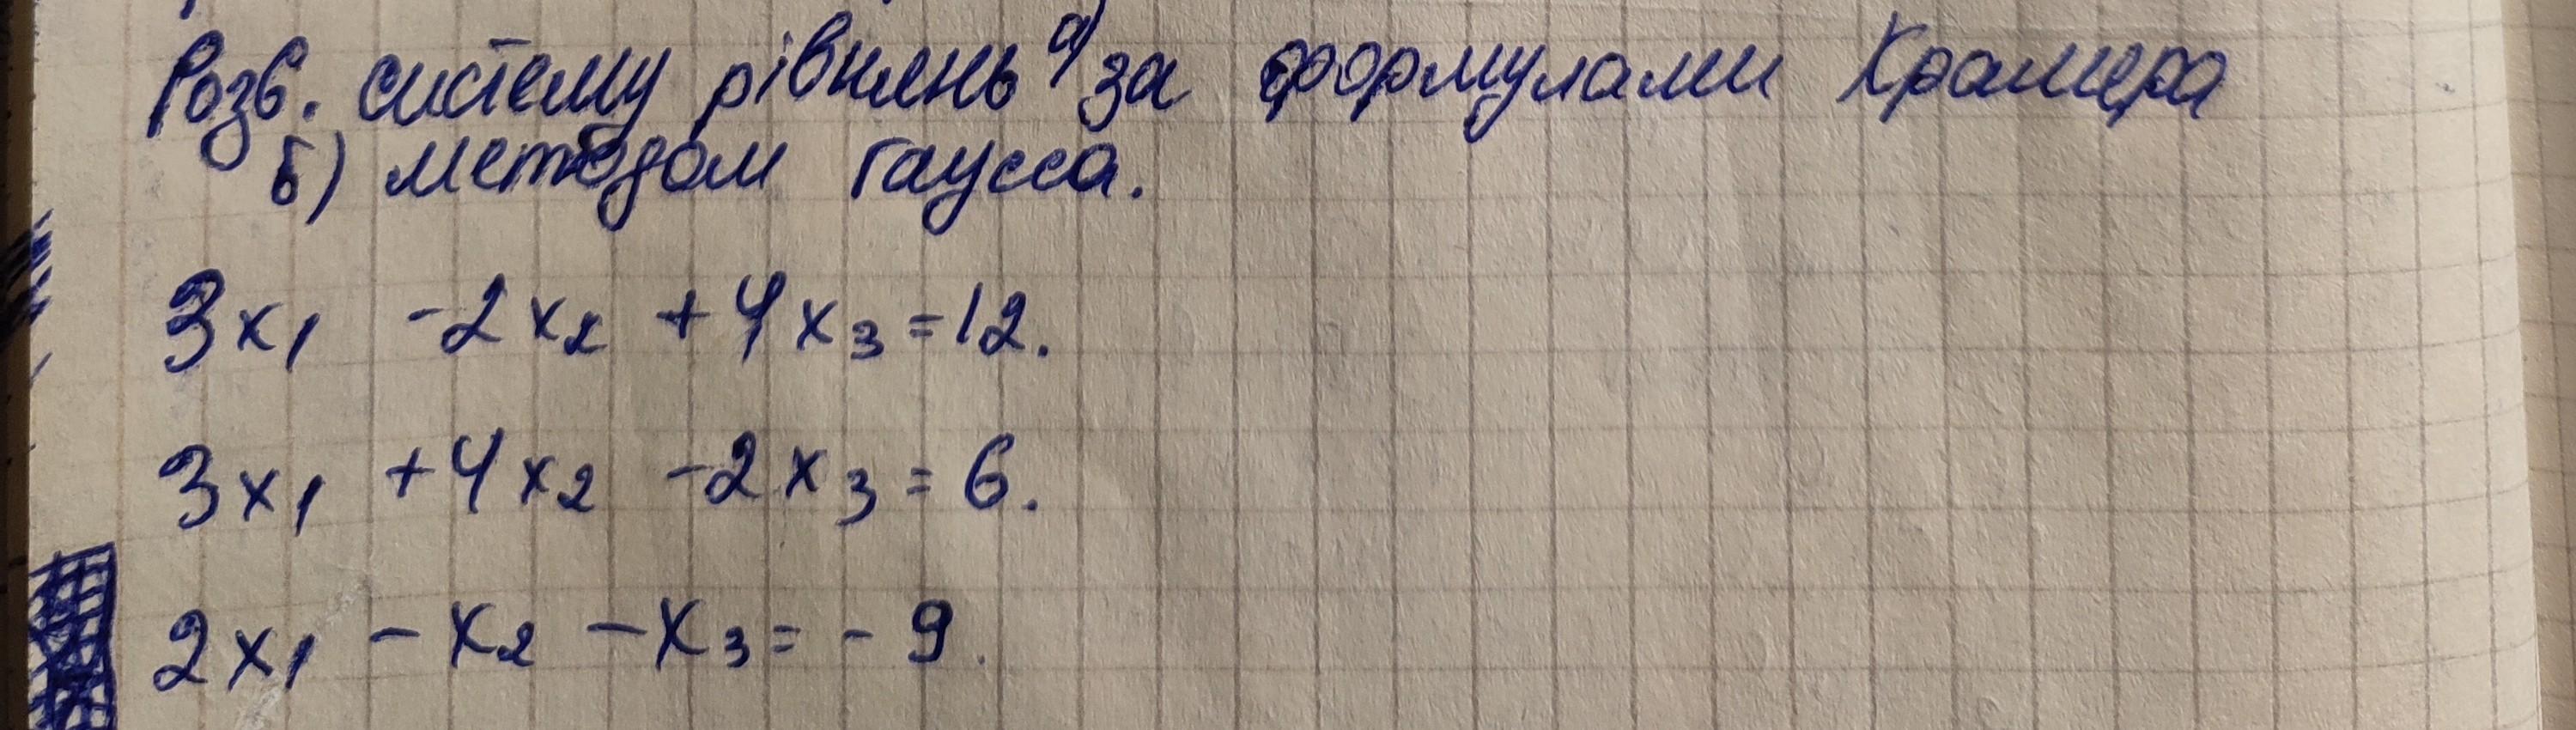 Розв. систему рівнянь а) за формулами Крамера
б) методом гаусса.
3x₁ -2x₂ +4x₃ =12.
3x₁ +4x₂ -2x₃ = 6.
2x₁ - x₂ - x₃ = - 9.